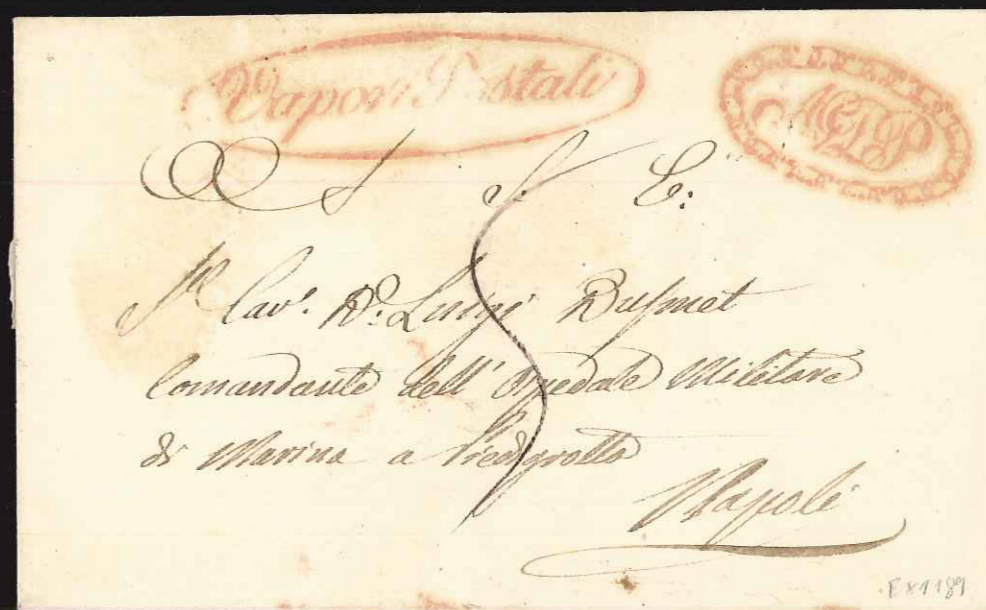 Vapori Postali
AGDP
A S. E.
Il Cav.e D.n Luigi Dusmet
Comandante dell' Ospedale Militare
di Marina a Piedigrotta
Napoli
EX1189